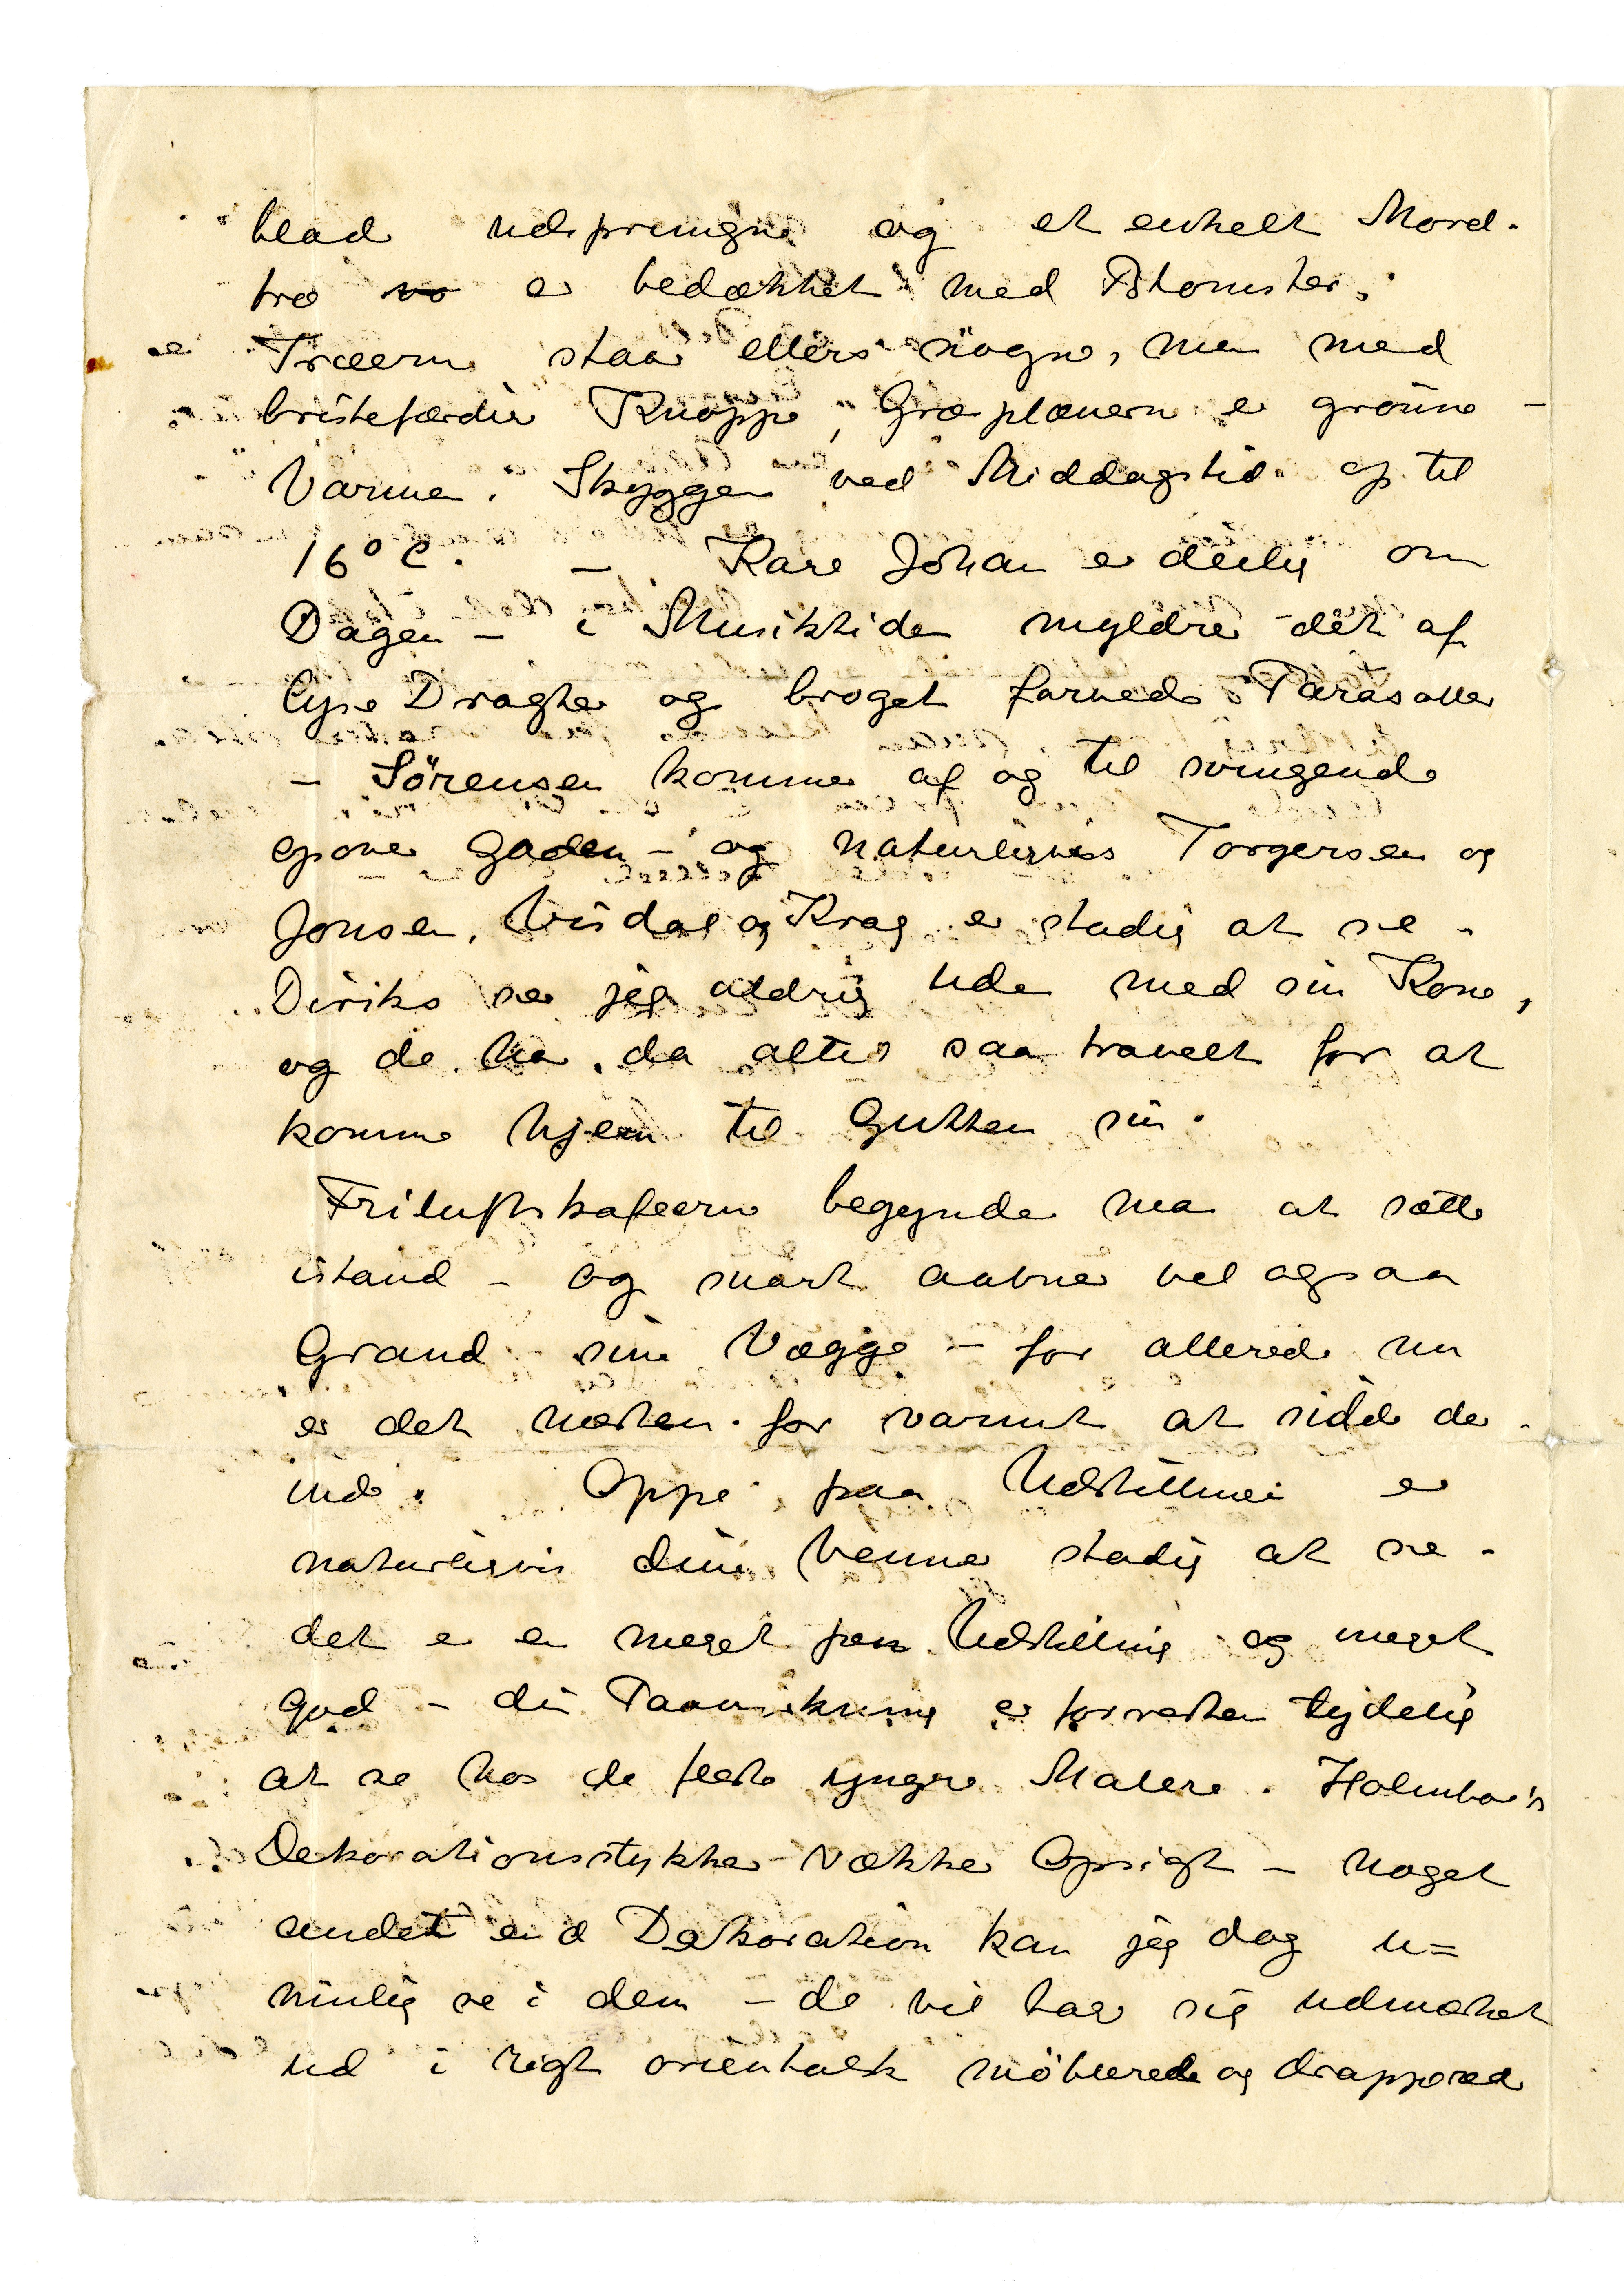 blad udsprungne og et enkelt Morel-
træ er bedækket med Blomster.
Træerne staar ellers nögne, men med
bristefærdige Knopper, Græsplænerne er grönne –
Varmen i Skyggen ved Middagstid op til
16° C. – Karl Johan er deilig om
Dagen – i Musiktiden myldrer det af
lyse Dragter og broget farvede Parasoller
– Sörensen kommer af og til svingende
opover Gaden – og naturligvis Torgersen og
Jonsen, Visdal og Krag er stadig at se –
Diriks ser jeg aldrig uden med sin Kone,
og de har da altid saa travelt for at
komme hjem til Gutten sin.
Friluftskafeerne begynder man at sætte
istand – og snart aabner vel ogsaa
Grand sine Vægge – for allerede nu
er det næsten for varmt at sidde der-
inde. Oppe paa Udstillingen er
naturligvis dine Venner stadig at se –
det er en meget pen Udstilling og meget
god – din Paavirkning er forresten tydelig
at se hos de fleste yngre Malere. Holmboe's
Dekorationsstykker vækker Opsigt – noget
andet end Dekoration kan jeg dog u=
mulig se i dem – de vil tage sig udmærket
ud i rigt orientalsk möblerede og drapperede